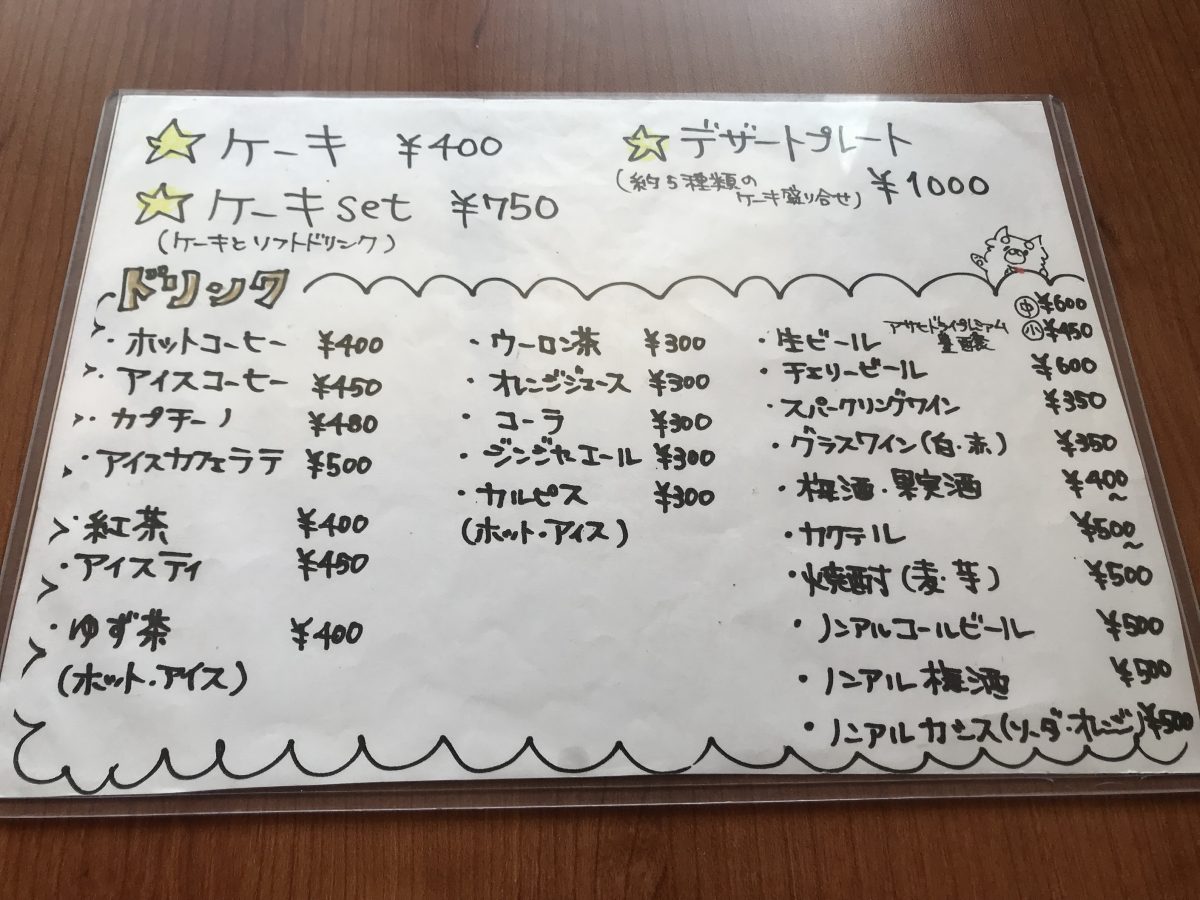 ケーキ ¥400
ケーキset ¥750
(ケーキとソフトドリンク)
デザートプレート
(約5種類の
ケーキ盛り合せ) ¥1000
ドリンク
・ホットコーヒー ¥400
・アイスコーヒー ¥450
・カプチーノ ¥480
・アイスカフェラテ ¥500
・紅茶 ¥400
・アイスティ ¥450
・ゆず茶 ¥400
(ホット・アイス)
・ウーロン茶 ¥300
・オレンジジュース ¥300
・コーラ ¥300
・ジンジャーエール ¥300
・カルピス ¥300
(ホット・アイス)
・生ビール アサヒドライプレミアム 豊醸 中 ¥600
小 ¥450
・チェリービール ¥600
・スパークリングワイン ¥350
・グラスワイン(白・赤) ¥350
・梅酒・果実酒 ¥400~
・カクテル ¥500~
・焼酎(麦・芋) ¥500
・ノンアルコールビール ¥500
・ノンアル梅酒 ¥500
・ノンアルカシス(ソーダ・オレンジ) ¥500